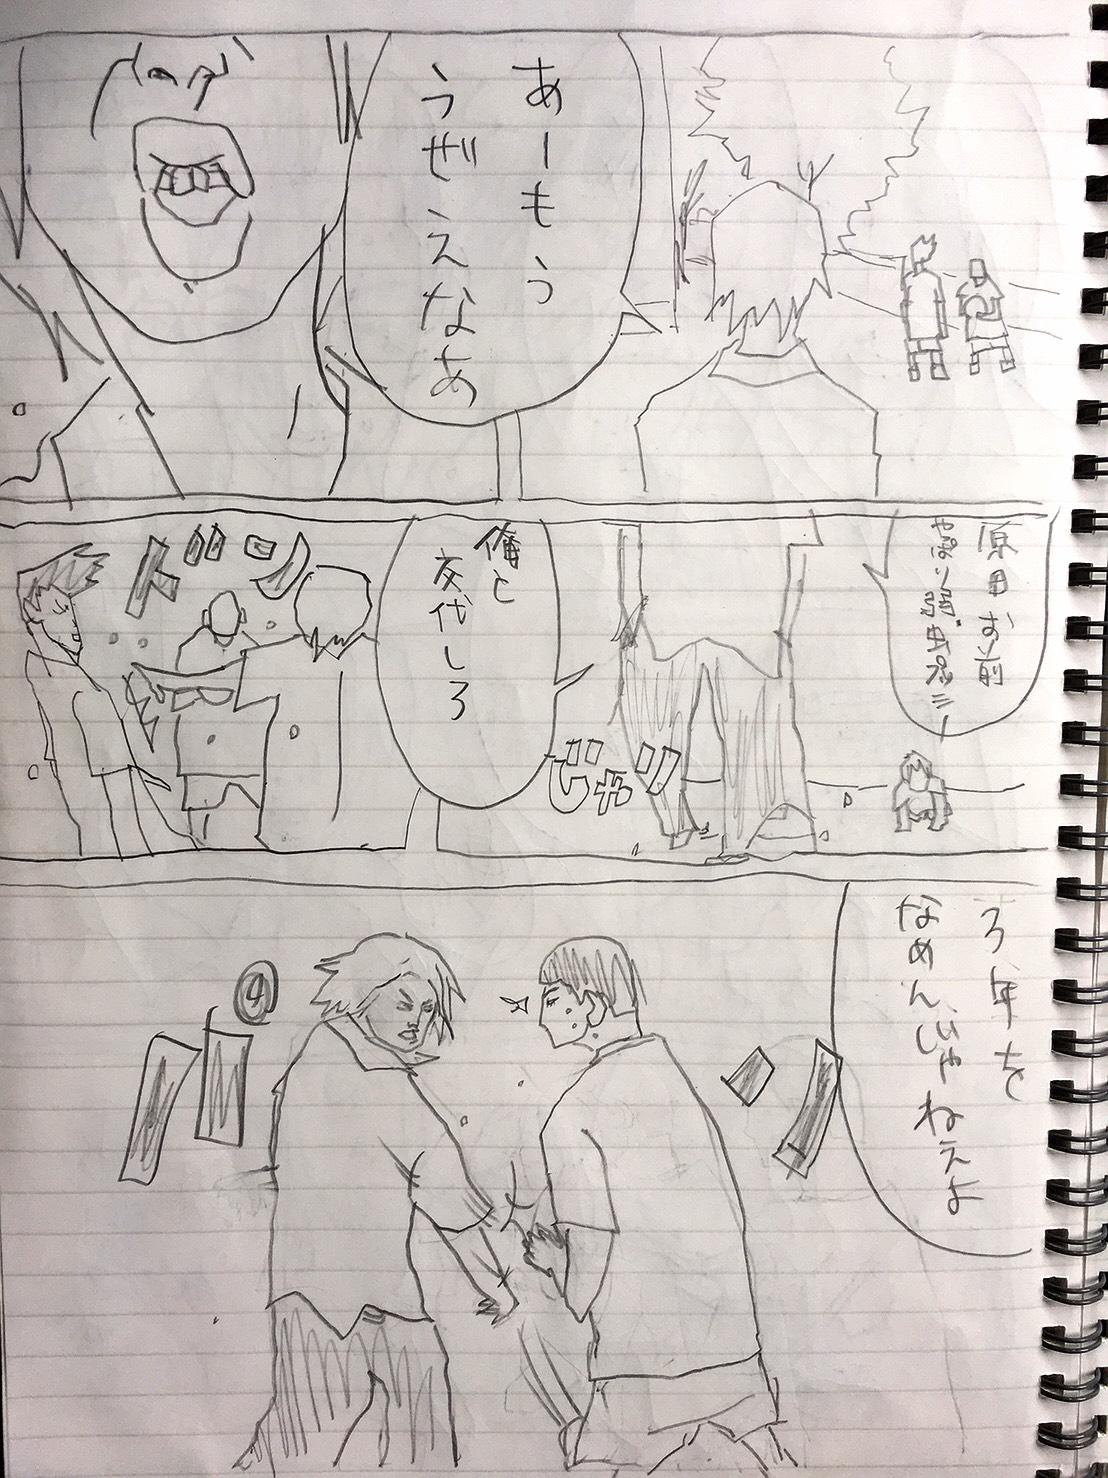 あーもう
うぜえなあ
原田お前
やっぱり弱
俺と
交代しろ
じゃリ
ドン
3年を
なめんじゃねえよ
④